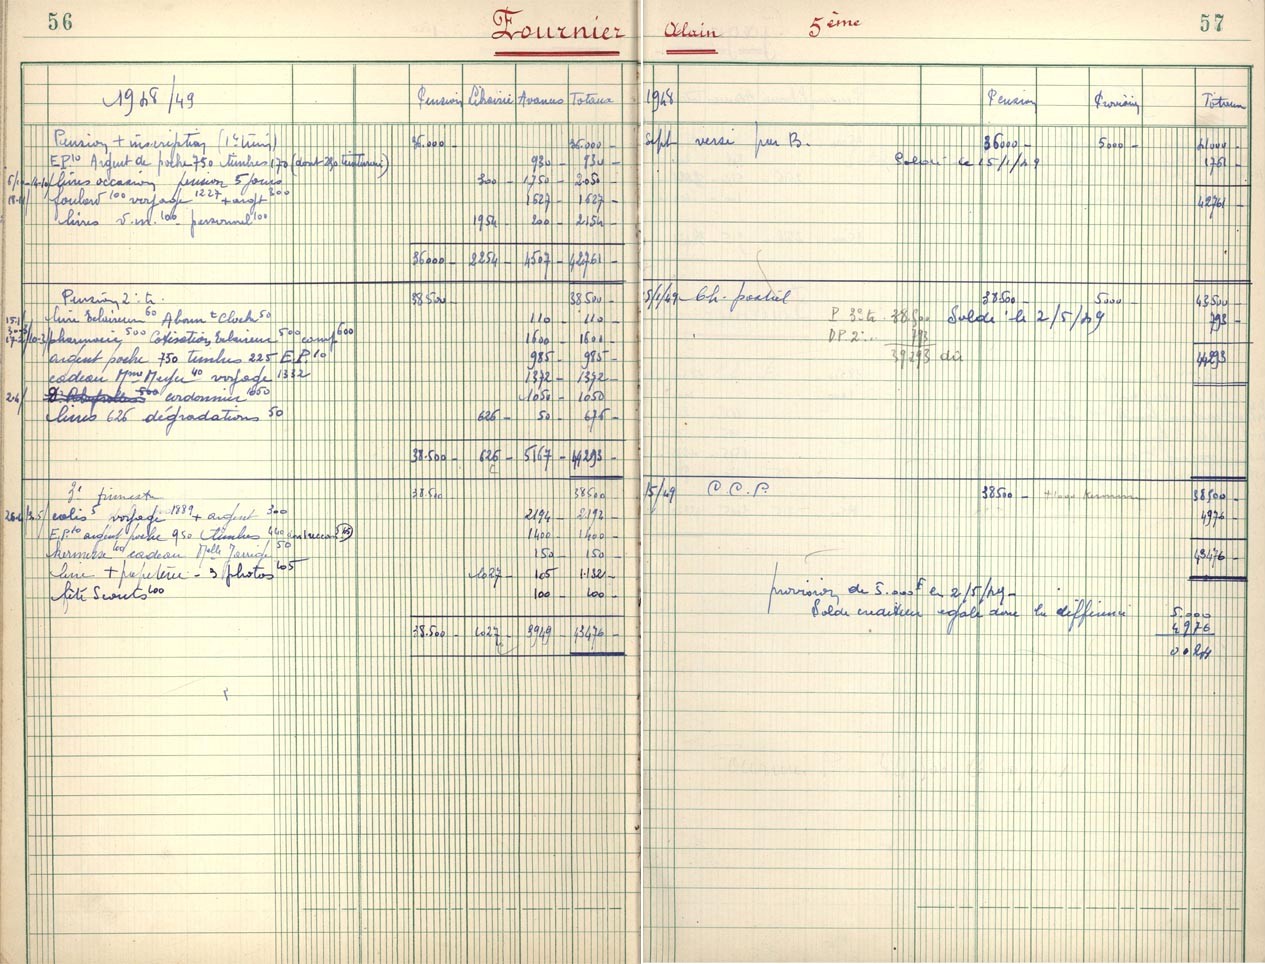 56
Fournier Alain 5ème
57
1948/49 Pension Librairie Avances Totaux
Pension + inscription (1er trim) 36.000 - 36.000 -
E.P.10 Argent de poche 750 timbres 170 930 - 930 -
livres occasion pension 5 jours 300 - 1750 - 2050 -
foulard 100 voyage 1227 + argt 300 1627 - 1627 -
livres v.m. 100 personnel 100 1954 200 - 2154 -
36000 - 2254 - 4507 - 42761 -
Pension 2e tr. 38500 - 38500 -
livre Eclaireur 60 Abonnt Cloch 50 110 - 110 -
pharmacie 500 Cotisation Eclaireur 500 camp 600 1600 - 1600 -
argent poche 750 timbres 225 E.P.10 985 - 985 -
cadeau Mme Meyer 40 voyage 1332 1372 - 1372 -
2.4/ 500 cordonnier 1050 1050 - 1050
livres 626 dégradations 50 626 - 50 - 676 -
38.500 - 626 - 5167 - 44293 -
3e trimestre 38.500 38500 -
colis 5 voyage 1889 + argent 300 2194 - 2192 -
E.P.10 argent poche 950 timbres 440 1400 - 1400 -
kermesse 100 cadeau Melle 50 150 - 150 -
livre + papeterie - 3 photos 105 1027 - 105 1.132 -
fête Scouts 100 100 - 100 -
38.500 - 1027 - 3949 - 43476 -
1948 Pension Provision Totaux
Sept versé par B. 36000 - 5000 - 41000 -
Soldé le 15/1/49 1761 -
42761 -
5/1/49 Ch. postal 38500 - 5000 - 43500 -
P. 3e tr. 38.500 Soldé le 2/5/49 793 -
D.P. 2e 793
39293 dû 44293 -
/5/49 C.C.P. 38500 - 38500 -
4976 -
43476 -
provision de 5.000F en 2/5/49 -
Solde créditeur égale donc la différence 5.000
4976
0.024